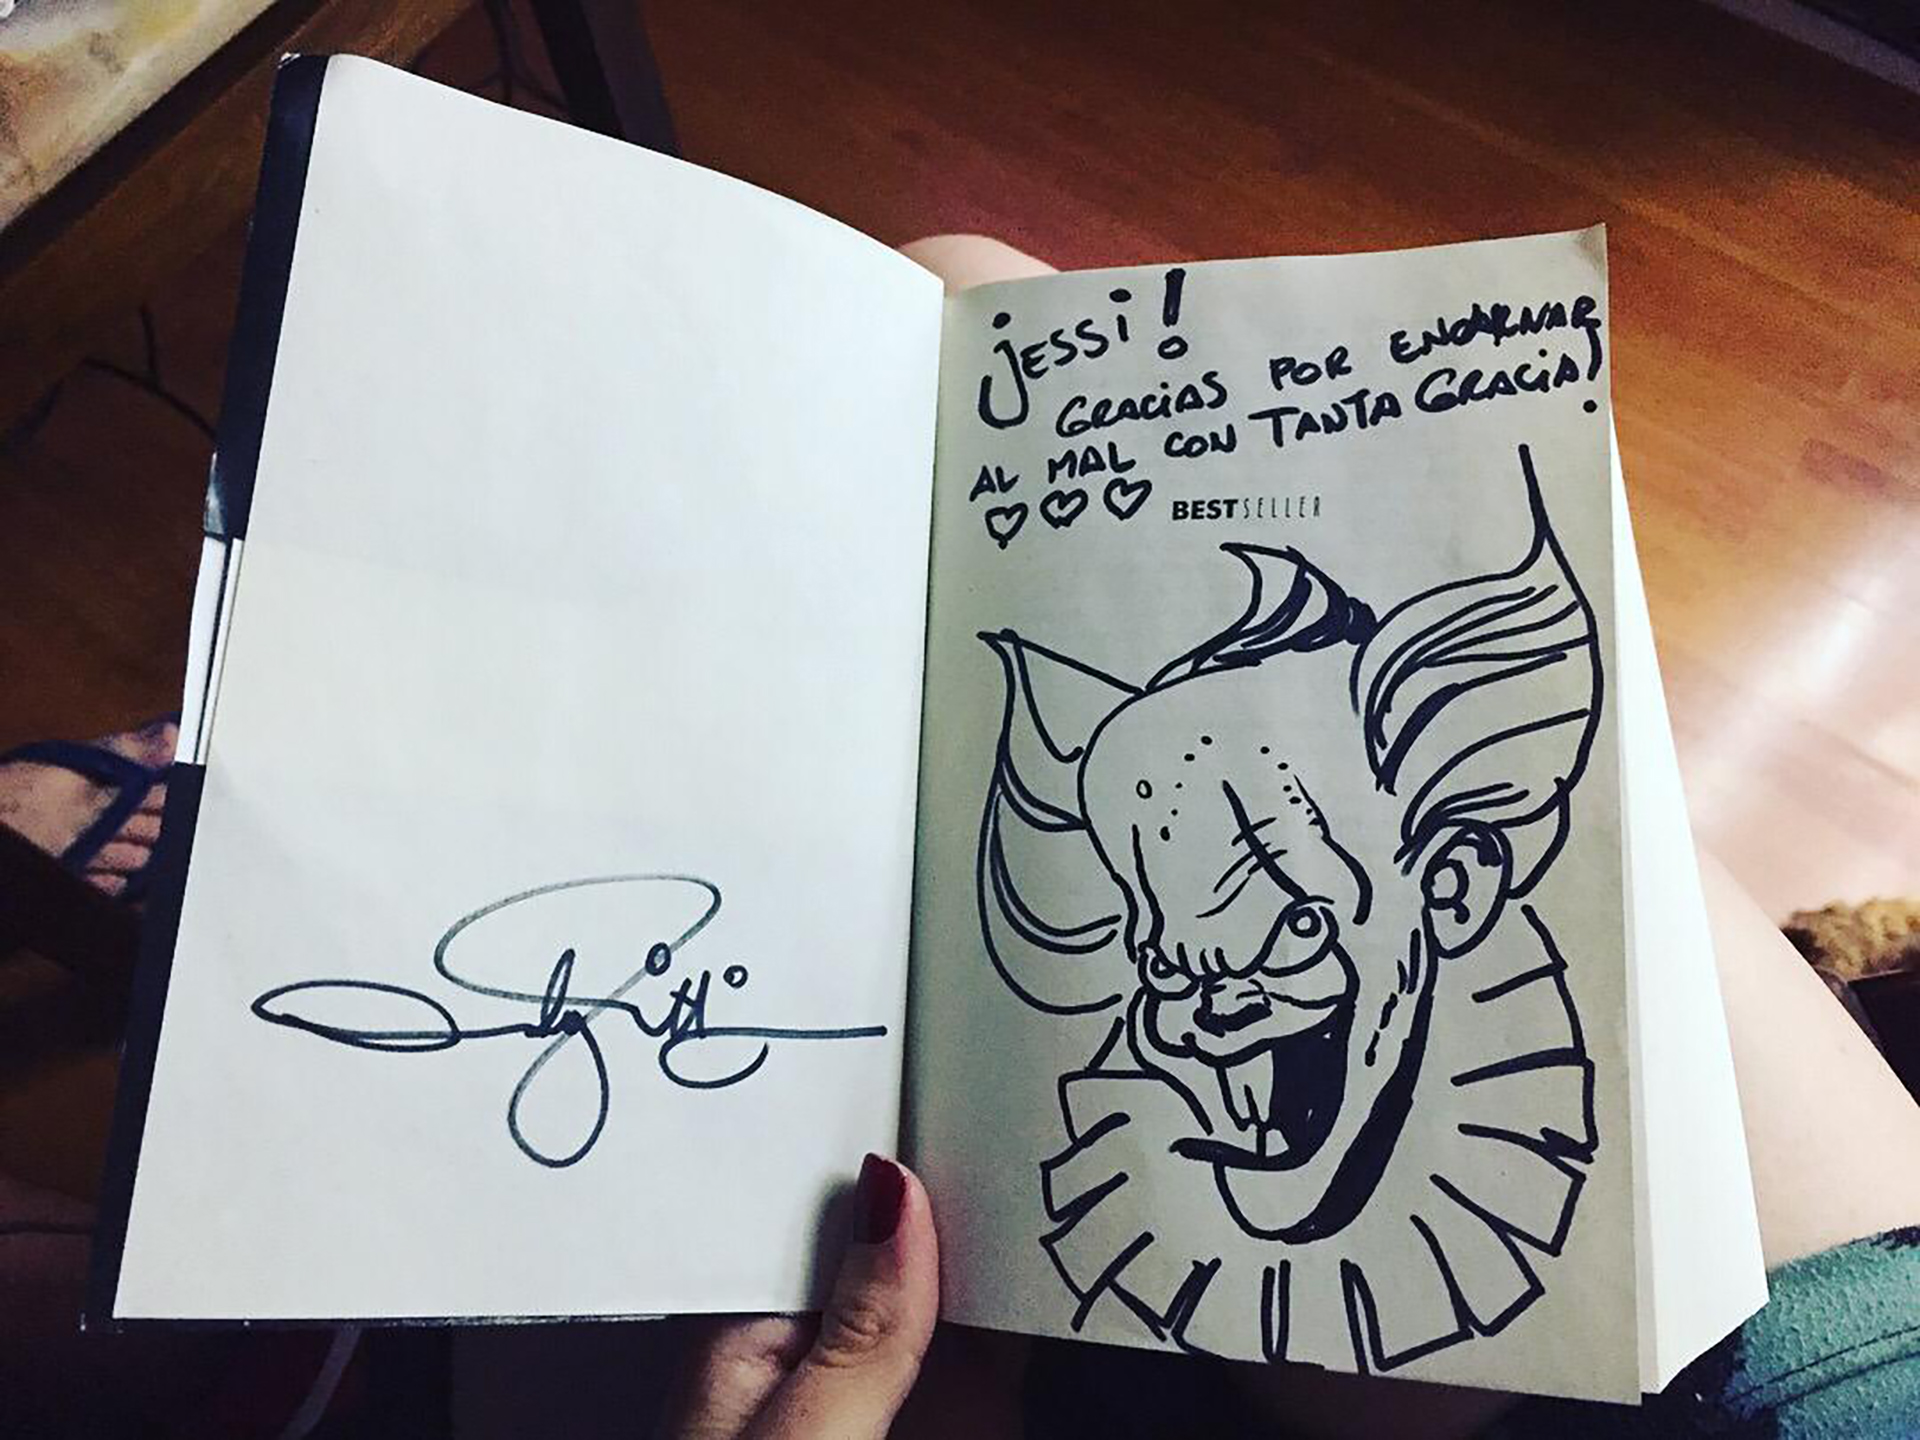 jESSi!
GRACiAS POR ENCARNAR
AL MAL CON TANTA GRACiA!
BESTSELLER